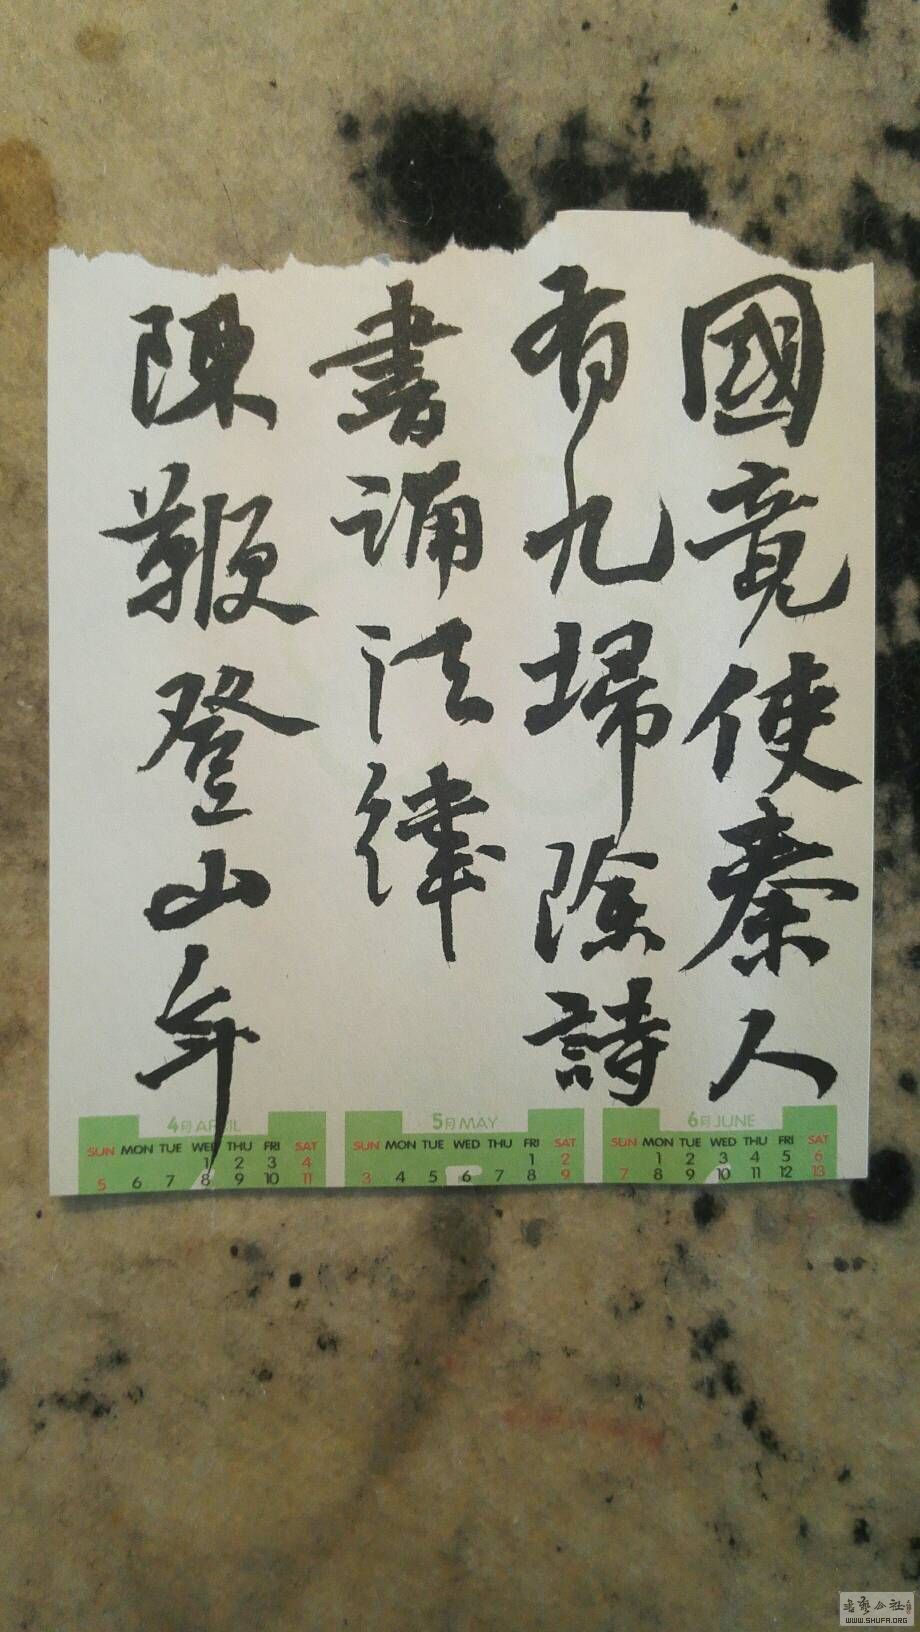 國竟使秦人
有九掃除詩
書誦法律
陳鞭登山年
4月 APRIL
SUN MON TUE WED THU FRI SAT
1 2 3 4
5 6 7 8 9 10 11
5月 MAY
SUN MON TUE WED THU FRI SAT
1 2
3 4 5 6 7 8 9
6月 JUNE
SUN MON TUE WED THU FRI SAT
1 2 3 4 5 6
7 8 9 10 11 12 13
书艺公社
WWW.SHUFA.ORG